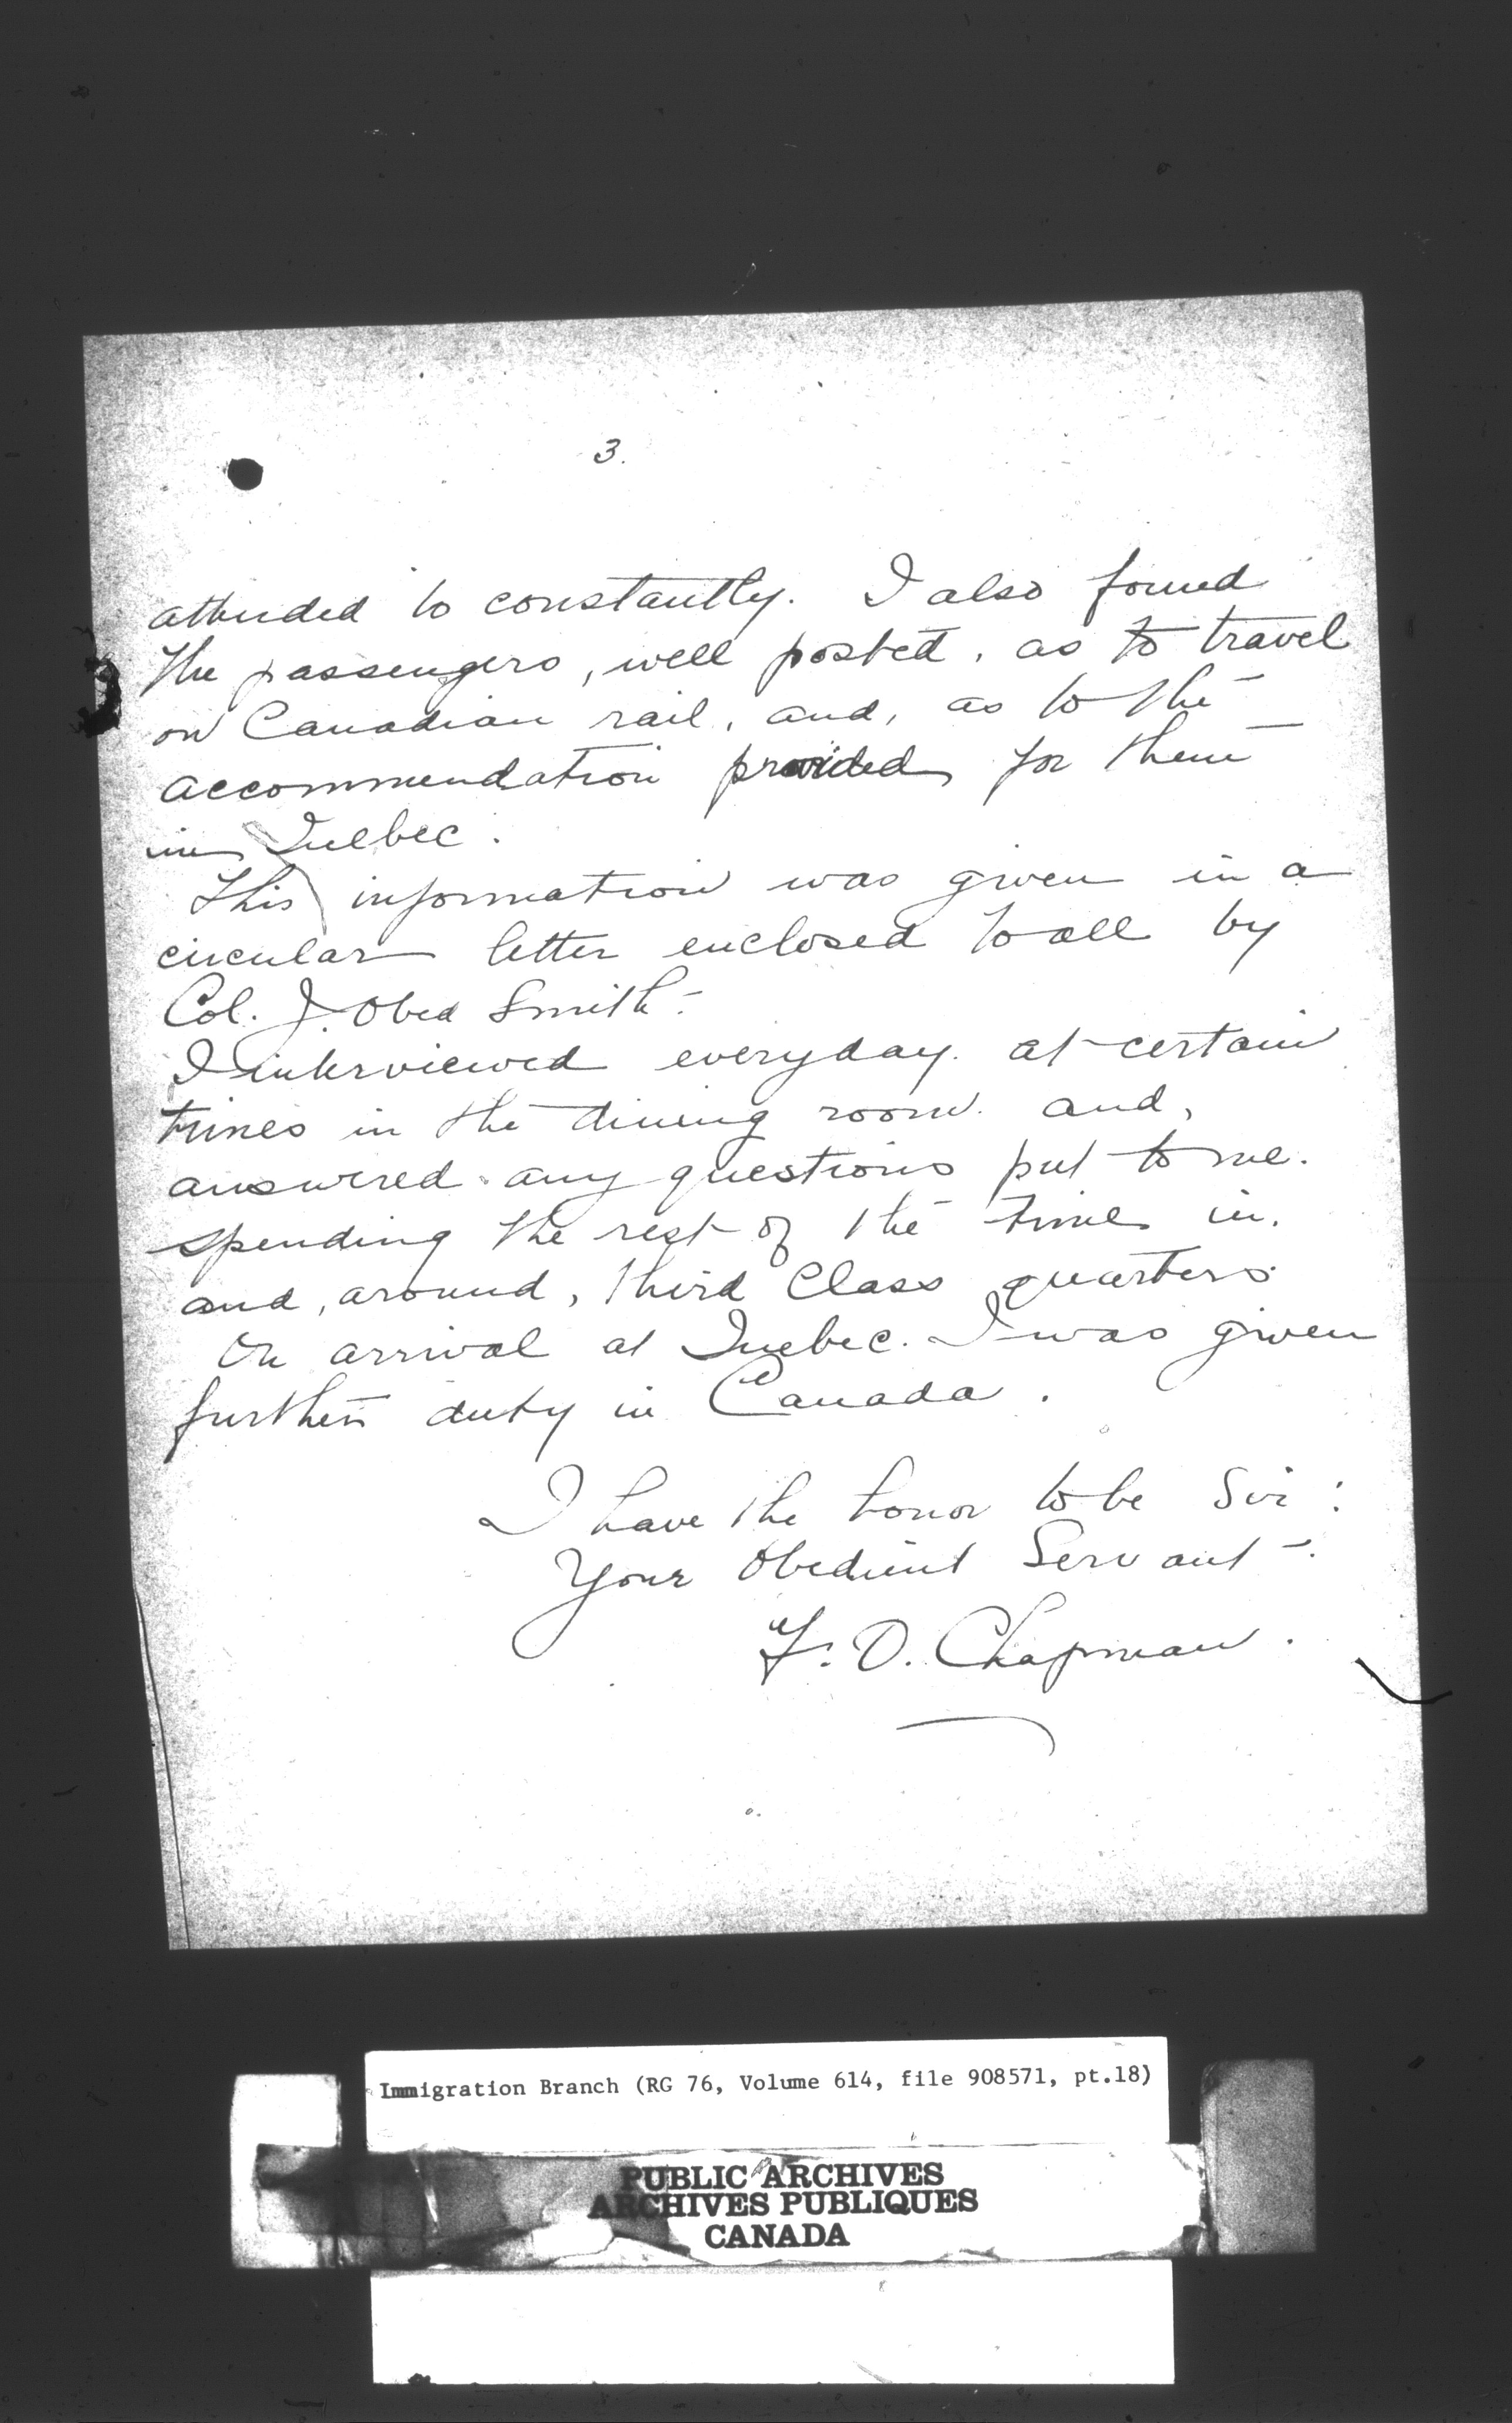 3.
attended to constantly. I also found
the passengers, well posted, as to travel
on Canadian rail, and, as to the
accommendation provided for them
in Quebec.
This information was given in a
circular letter enclosed to all by
Col. J. Obed Smith.
I interviewed everyday at certain
times in the dining room. and,
answered any questions put to me.
spending the rest of the time in.
and, around, third Class quarters.
On arrival at Quebec. I was given
further duty in Canada.
I have the honor to be Sir:
Your Obedient Servant.
F. D. Chapman.
Immigration Branch (RG 76, Volume 614, file 908571, pt.18)
PUBLIC ARCHIVES
ARCHIVES PUBLIQUES
CANADA